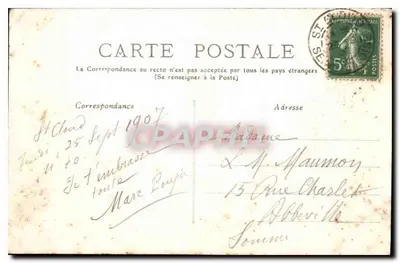 CARTE POSTALE
La Correspondance au recto n'est pas acceptée par tous les pays étrangers
(Se renseigner à la Poste)
Correspondance
Adresse
St Cloud
25 Sept 1907
Je t'embrasse
toute
Marc
Madame
L M. Maumon
15 Rue Charles
Abbeville
Somme
5
POSTES
CPAPHIL